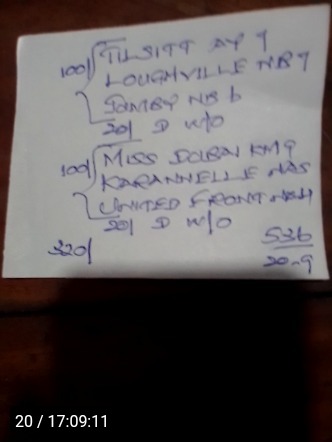 100/ TILSITT AY 9
LOUGHVILLE NB 9
JOMBY NB 6
20/ D W/O
100/ MISS DUBAI KM 9
KARANNELLE NAS
UNITED FRONT NAM
20/ D W/O
320/
536
20-9
20 / 17:09:11